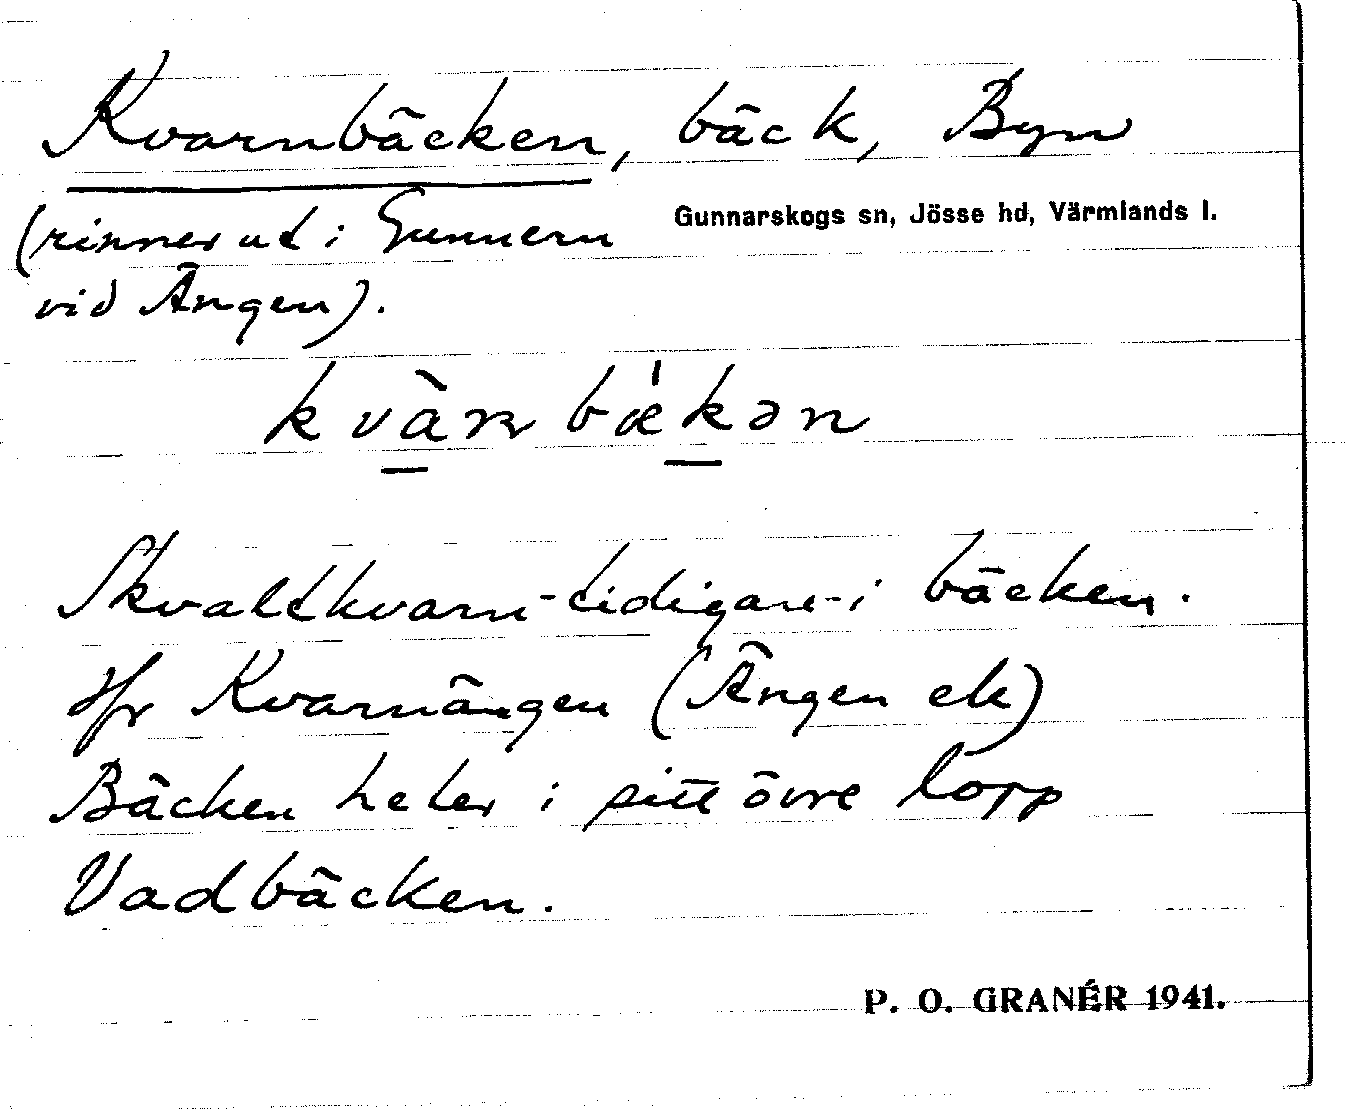 Kvarnbäcken, bäck, Byn
Gunnarskogs sn, Jösse hd, Värmlands l.
(rinner ut i Gunnern
vid Ängen).
kvà̠ɳ bæ̍k̠ən
Skvaltkvarn - tidigare - i bäcken.
Jfr Kvarnängen (Ängen ek)
Bäcken heter i sitt övre lopp
Vadbäcken.
P. O. GRANÉR 1941.